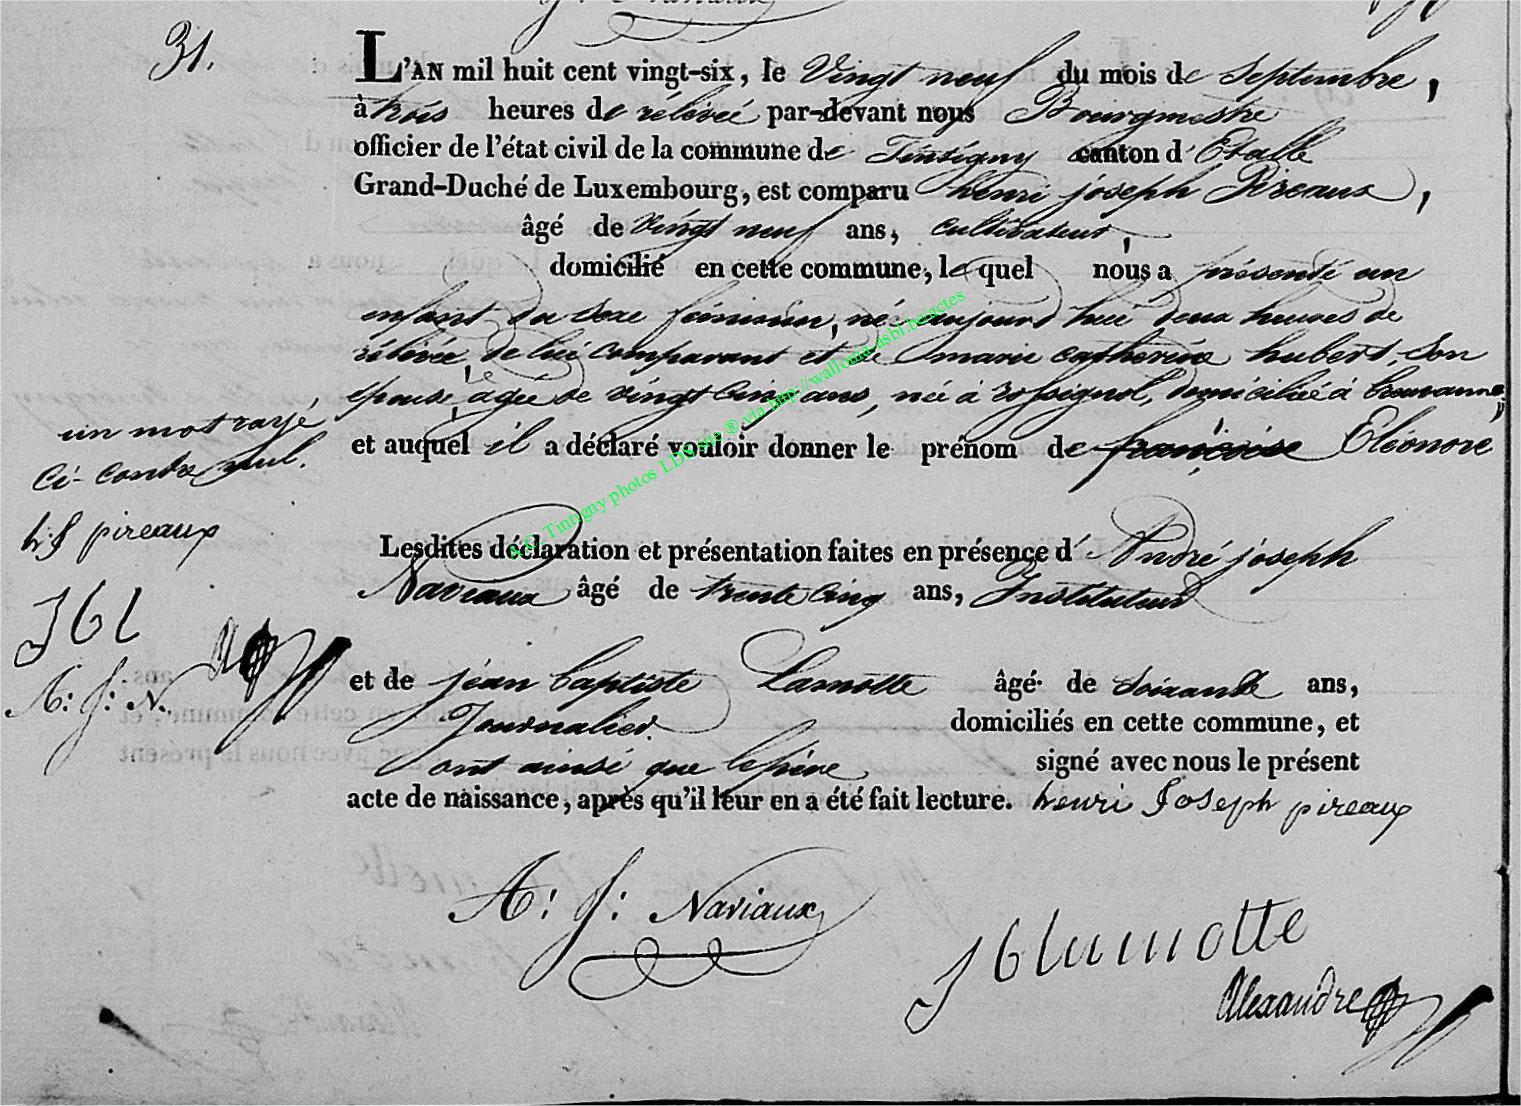 31.
L'AN mil huit cent vingt-six, le Vingt neuf du mois de Septembre,
à trois heures de rélévée par-devant nous Bourgmestre
officier de l'état civil de la commune de Tintigny canton d'Etalle
Grand-Duché de Luxembourg, est comparu henri joseph Pireaux,
âgé de vingt neuf ans, cultivateur,
domicilié en cette commune, le quel nous a présenté un
enfant du sexe féminin, né aujourd'hui deux heures de
rélévée, de lui comparant et de marie catherine hubert, Son
épouse, agée de vingt cinq ans, née à rossignol, domiciliée à
et auquel il a déclaré vouloir donner le prénom de françoise Eléonore
un mot rayé
Ci-contre nul.
h. j pireaux
J b l
A: J: N.
Lesdites déclaration et présentation faites en présence d'André joseph
Naviaux âgé de trente cinq ans, Instituteur
et de jean baptiste Lamotte âgé de Soixante ans,
Journalier. domiciliés en cette commune, et
ont ainsi que le père signé avec nous le présent
acte de naissance, après qu'il leur en a été fait lecture. henri Joseph pireaux
A: J: Naviaux
J b lamotte
Alexandre
A.C. Tintigny photos LDoome ® via http://wallonia-asbl.be/actes